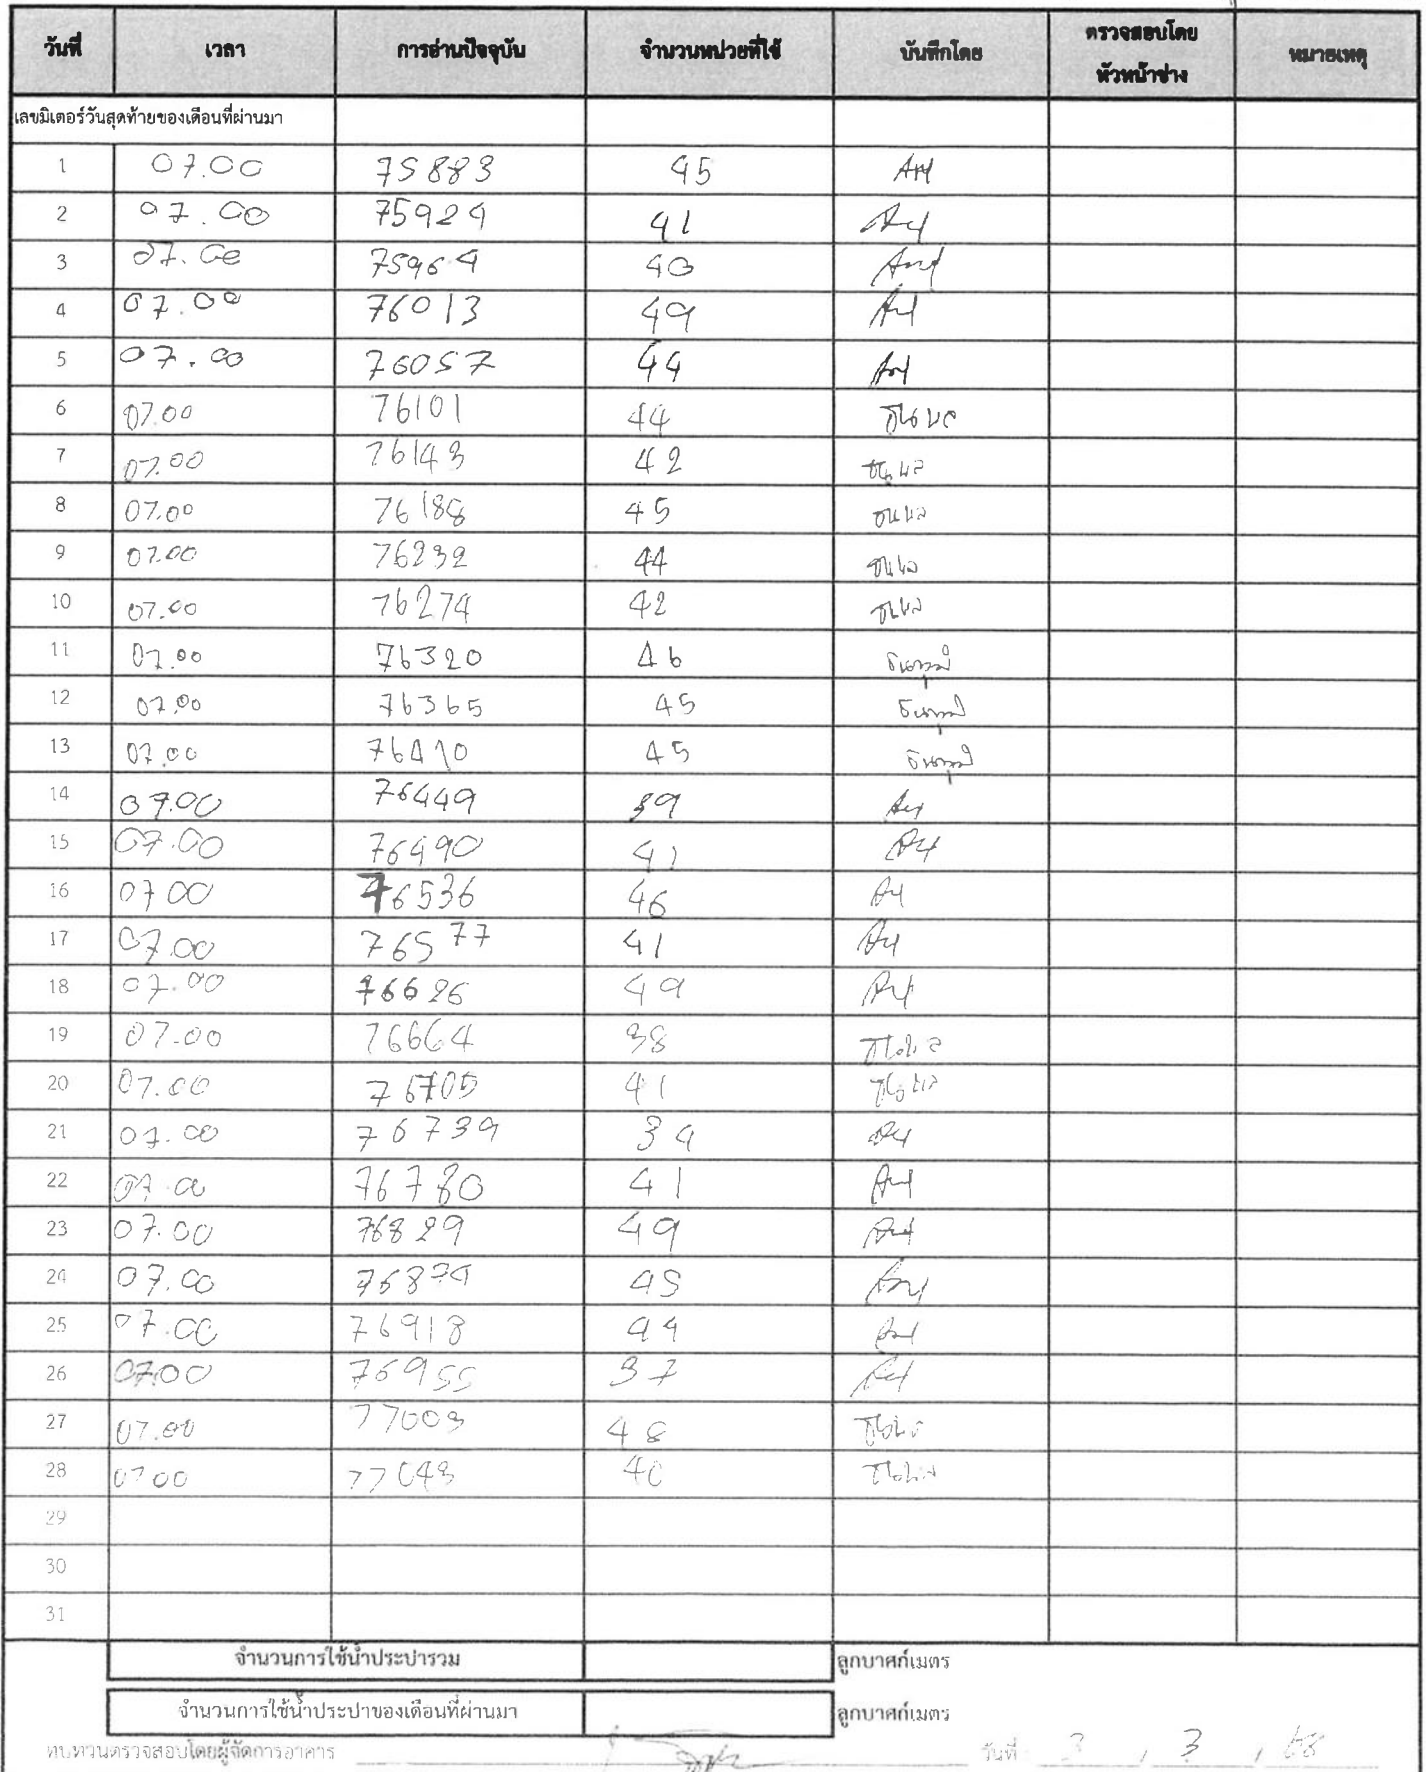 วันที่ เวลา การอ่านปัจจุบัน จำนวนหน่วยที่ใช้ บันทึกโดย ตรวจสอบโดย หัวหน้าช่าง หมายเหตุ
เลขมิเตอร์วันสุดท้ายของเดือนที่ผ่านมา
1 07.00 75883 45
2 07.00 75924 41
3 07.00 75964 40
4 07.00 76013 49
5 07.00 76057 44
6 07.00 76101 44
7 07.00 76143 42
8 07.00 76188 45
9 07.00 76232 44
10 07.00 76274 42
11 07.00 76320 46
12 07.00 76365 45
13 07.00 76410 45
14 07.00 76449 39
15 07.00 76490 41
16 07 00 76536 46
17 07.00 76577 41
18 07.00 76626 49
19 07.00 76664 38
20 07.00 76705 41
21 07.00 76739 39
22 07.00 76780 41
23 07.00 76829 49
24 07.00 76874 45
25 07.00 76918 44
26 07.00 76955 37
27 07.00 77003 48
28 07 00 77043 40
29
30
31
จำนวนการใช้น้ำประปารวม ลูกบาศก์เมตร
จำนวนการใช้น้ำประปาของเดือนที่ผ่านมา ลูกบาศก์เมตร
ทบทวนตรวจสอบโดยผู้จัดการอาคาร วันที่ 3 / 3 / 68